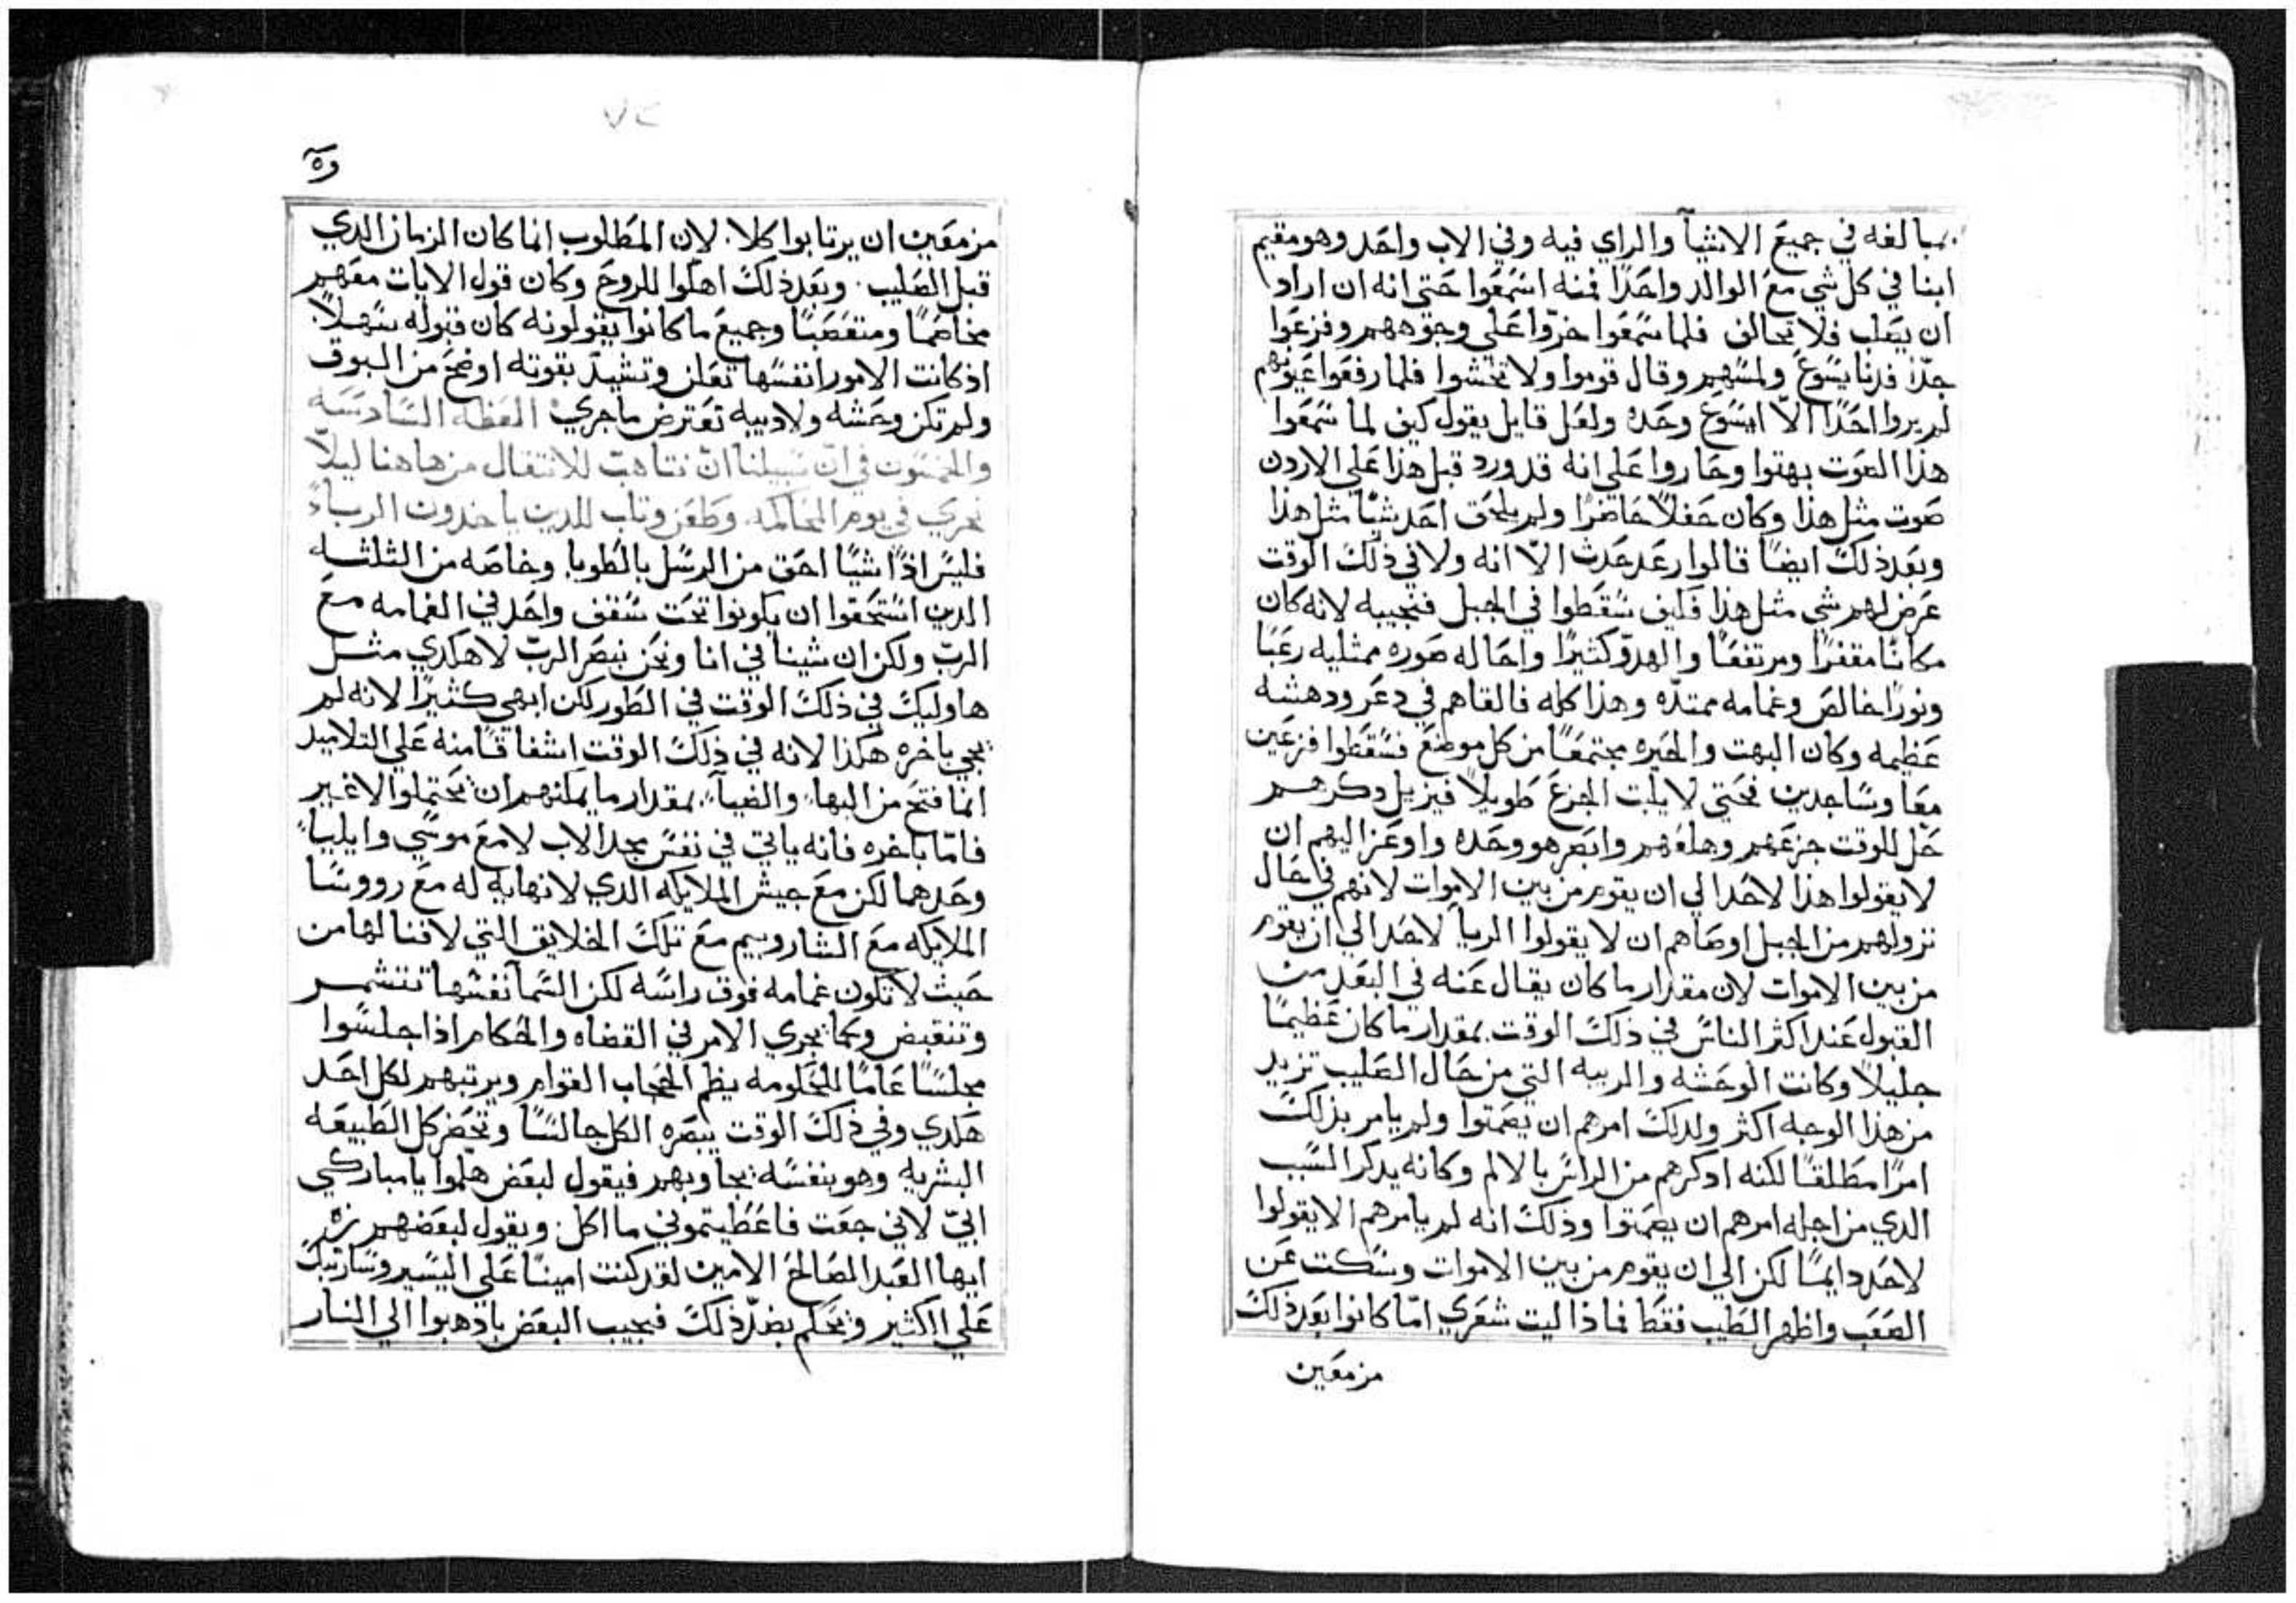 مبالغه في جميع الاشيآ والراي فيه وفي الاب واحد وهو مقيم
ابنا في كل شي مع الوالد واحدًا فمنه اسمعوا حتى انه ان اراد
ان يصلب فلا تخالف فلما سمعوا خرّوا على وجوههم وفزعوا
جدًا فدنا يسوع ولمسهم وقال قوموا ولا تخشوا فلما رفعوا عيونهم
لم يروا احدًا الّا ايسوع وحده ولعل قايل يقول كيف لما سمعوا
هذا الصوت بهتوا وحاروا على انه قد ورد قبل هذا علي الاردن
صوت مثل هذا وكان حفلاً حاضرًا ولم يلحق احد شيًا مثل هذا
وبعد ذلك ايضًا قالوا رعد حدث الّا انه ولا في ذلك الوقت
عرض لهم شي مثل هذا فكيف سقطوا في الجبل فنجيبه لانه كان
مكانًا مقفرًا ومرتفعًا والهدوّ كثيرًا واحاله صوره ممتليه رعبًا
ونورًا خالص وغمامه ممتدّه وهذا كله فالقاهم في دعر ودهشه
عظيمه وكان البهت والحيره مجتمعًا من كل موضع فسقطوا فزعين
معا وساجدين فحتي لا يلبت الجزع طويلاً فيزيل دكرهم
حل للوقت جزعهم وهلعهم وابصر هو وحده واوعز اليهم ان
لا يقولوا هذا لاحد الي ان يقوم من بين الاموات لانهم في حال
نزولهم من الجبل اوصاهم ان لا يقولوا الريا لاحد الي ان يقوم
من بين الاموات لان مقدار ما كان يقال عنه في البعد من
القبول عند اكثر الناس في ذلك الوقت بمقدار ما كان عظيمًا
جليلاً وكانت الوحشه والريبه التي من حال الصليب تزيد
من هذا الوجه اكثر ولدلك امرهم ان يصمتوا ولم يامر بذلك
امرًا مطلقًا لكنه ادكرهم من الراس بالالم وكانه يدكر السبب
الدي من اجله امرهم ان يصمتوا وذلك انه لم يامرهم الا يقولوا
لاحد دايمًا لكن الي ان يقوم من بين الاموات وسكت عن
الصعب واظهر الطيب فقط فماذا ليت شعري امّا كانوا بعد ذلك
مزمعين
مزمعين ان يرتابوا كلا. لان المطلوب انما كان الزمان الدي
قبل الصليب. وبعد ذلك اهلّوا للروح وكان قول الايات معهم
مخاصمًا ومتعصبًا وجميع ما كانوا يقولونه كان قبوله سهلاً.
اذ كانت الامور انفسها تعلن وتشيد بقوته اوضح من البوق
ولم تكن وحشه ولا ريبه تعترض ما جري العظه السادسه
والخمسون في ان سبيلنا ان نتاهب للانتقال من هاهنا ليلاّ
نخزي في يوم المحاكمه وطعن وتاب للدين ياخدون الرباء
فليس اذًا شيًا احق من الرسل بالطوبا وخاصه من الثلثه
الدين استحقوا ان يكونوا تحت سقف واحد في الغمامه مع
الربّ ولكن ان شينا في انا ونحن نبصر الربّ لا هكدي مثل
هاوليك في ذلك الوقت في الطور لكن ابهي كثيرًا لانه لم
يجي باخره هكذا لانه في ذلك الوقت اشفاقًا منه علي التلاميد
انما فتح من البها والضيآ بمقدار ما يمكنهم ان يحتملوا لا غير
فامّا باخره فانه ياتي في نفس مجد الاب لا مع موسي وايليا
وحدهما لكن مع جيش الملايكه الدي لا نهايه له مع رووسا
الملايكه مع الشاروبيم مع تلك الخلايق التي لا فنا لها من
حيث لا تكون غمامه فوق راسه لكن السمآ نفسها تنشمر
وتنقبض وكما يجري الامر في القضاه والحكام اذا جلسوا
مجلسًا عامًا للحكومه يظم الحجاب القوام ويرتبهم لكل احد
هكدي وفي ذلك الوقت يبصره الكل جالسًا وتحضر كل الطبيعه
البشريه وهو بنفسه يجاوبهم فيقول لبعض هلموا يا مباركي
ابيّ لاني جعت فاعطيتموني ما اكل. ويقول لبعضهم نره
ايها العبد الصالح الامين لقد كنت امينًا علي اليسير وسارتبك
علي الكثير وتحكم بضدّ ذلك فيجيب البعض باذهبوا الي النار